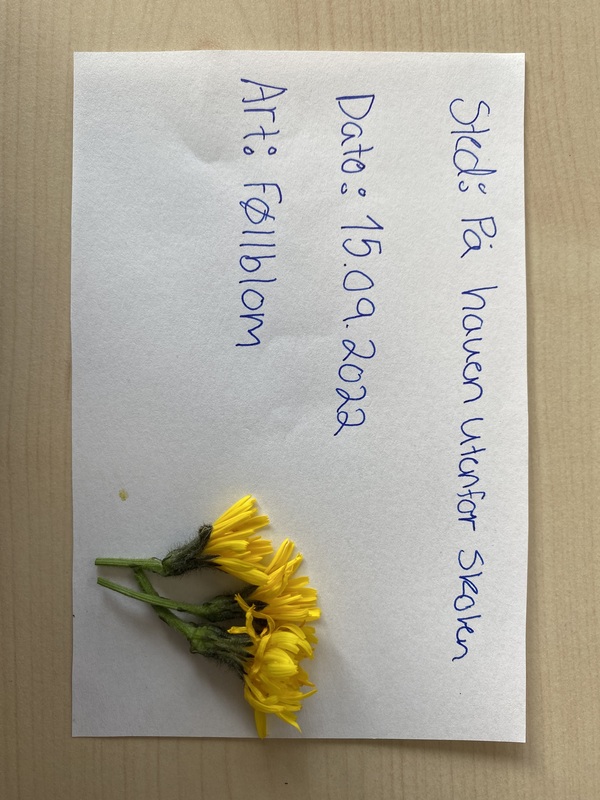 Sted: På hauen utenfor skolen
Dato: 15.09.2022
Art: Føllblom